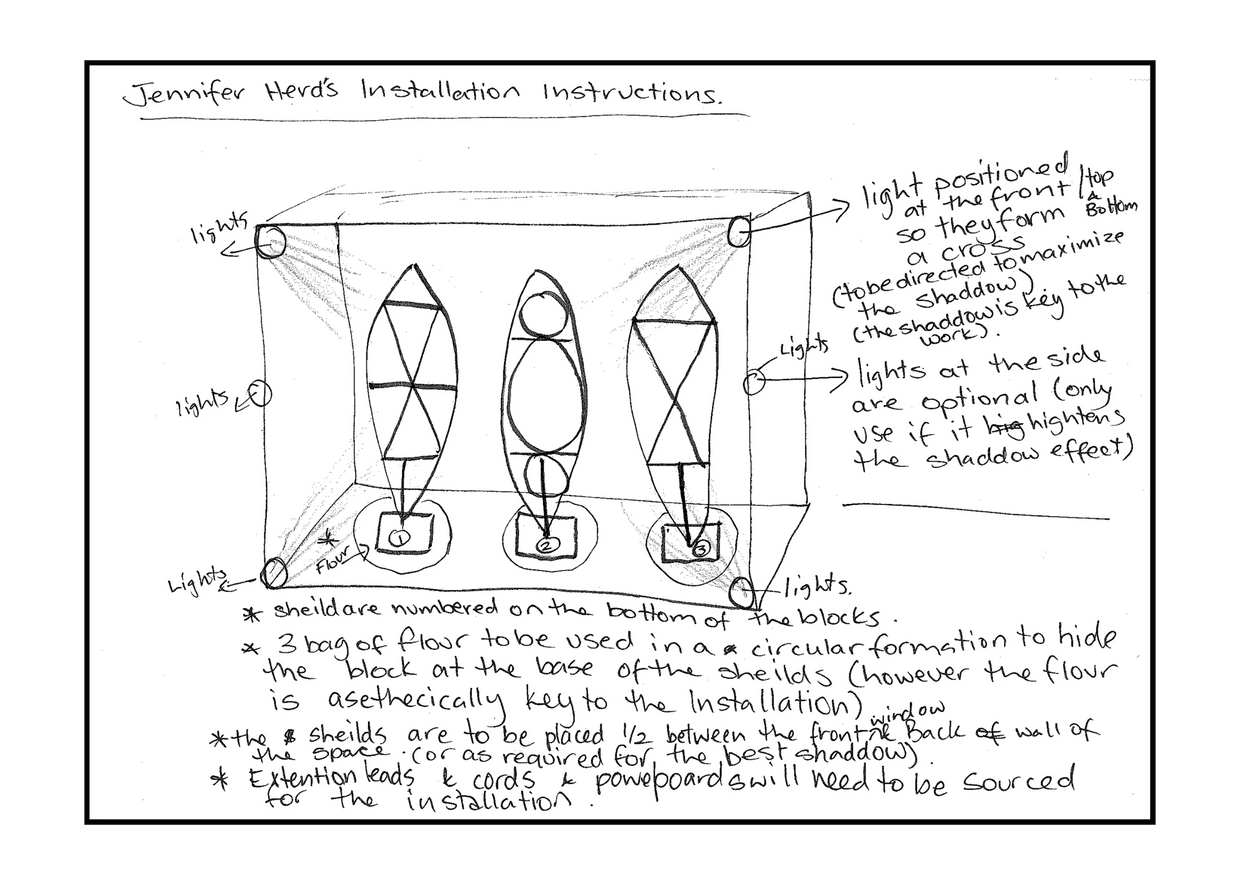 Jennifer Herd's Installation Instructions.
lights
light positioned
at the front /top
& Bottom
so they form
a cross
(to be directed to maximize
the shaddow)
(the shaddow is key to the
work).
Lights
lights
lights at the side
are optional (only
use if it hightens
the shaddow effect)
* Flour
1
2
3
Lights
lights.
* sheild are numbered on the bottom of the blocks.
* 3 bag of flour to be used in a circular formation to hide
the block at the base of the sheilds (however the flour
is asethecically key to the Installation)
window
* the sheilds are to be placed 1/2 between the front & Back wall of
the space. (or as required for the best shaddow).
* Extention leads & cords & poweboards will need to be sourced
for the installation.